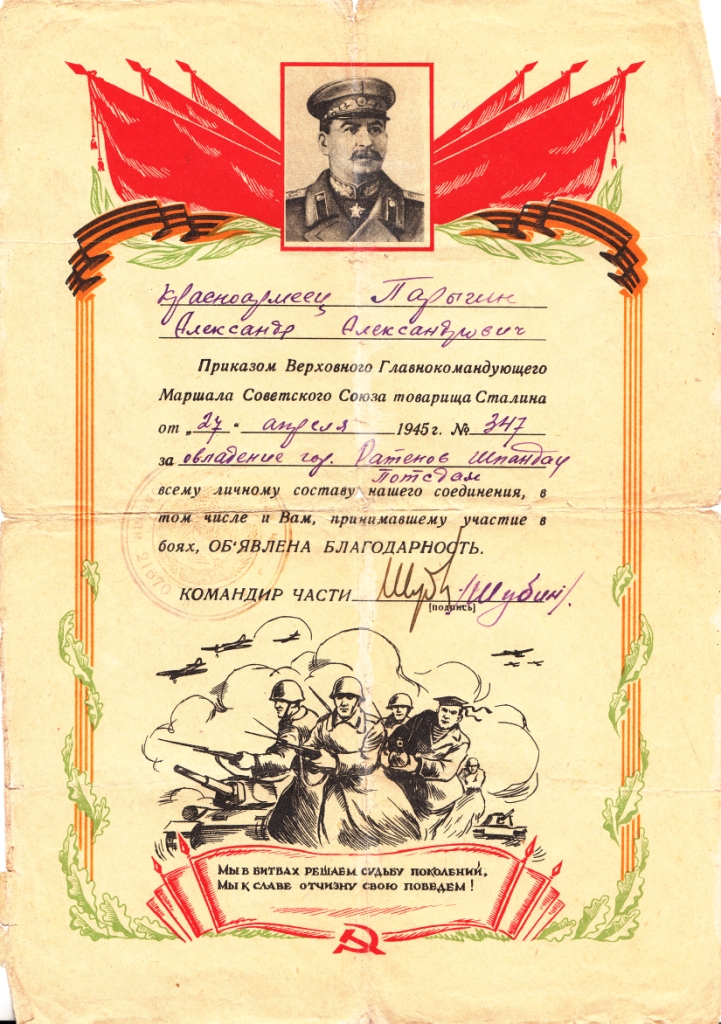 Красноармеец Парыгин
Александр Александрович
Приказом Верховного Главнокомандующего
Маршала Советского Союза товарища Сталина
от „27“ апреля 1945 г. № 347
за овладение гор. Ратенов Шпандау
Потсдам
всему личному составу нашего соединения, в
том числе и Вам, принимавшему участие в
боях, ОБ'ЯВЛЕНА БЛАГОДАРНОСТЬ.
КОМАНДИР ЧАСТИ Шуб /Шубин/.
[подпись]
21870
Мы в битвах решаем судьбу поколений,
Мы к славе отчизну свою победем!